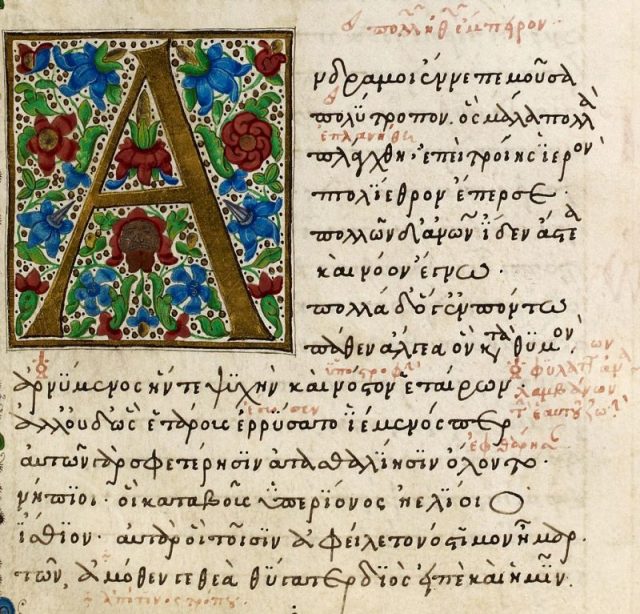 Ἄ
νδρα μοι ἔννεπε μοῦσα
πολύτροπον. ὃς μάλα πολλὰ
ἐπλανήθη
πλάγχθη, ἐπεὶ τροίης ἱερὸν
πτολίεθρον ἔπερσε·
πολλῶν δ' ἀν̅ω̅ν ἴδεν ἄστεα
καὶ νόον ἔγνω·
πολλὰ δ' ὅγ' ἐν πόντω
πάθεν ἄλγεα ὃν κατὰ θυμόν
ὑποστροφ
ἀρνύμενος ἥν τε ψυχὴν καὶ νόστον ἑταίρων·
ἔσωσεν
ἀλλ' οὐδ' ὧς ἑτάροις ἐρρύσατο ἱέμενός περ
ἐφθάρησα
αὐτῶν γὰρ σφετέρησιν ἀτασθαλίησιν ὄλοντο·
νήπιοι· οἳ κατὰ βοῦς ὑπερίονος ἠελίοιο
ἤσθιον· αὐτὰρ ὁ τοῖσιν ἀφείλετο νόστιμον ἦμαρ·
τῶν ἁμόθεν γε θεὰ θύγατερ διὸς εἰπὲ καὶ ἡμῖν.
ἀπό τινος τρόπου